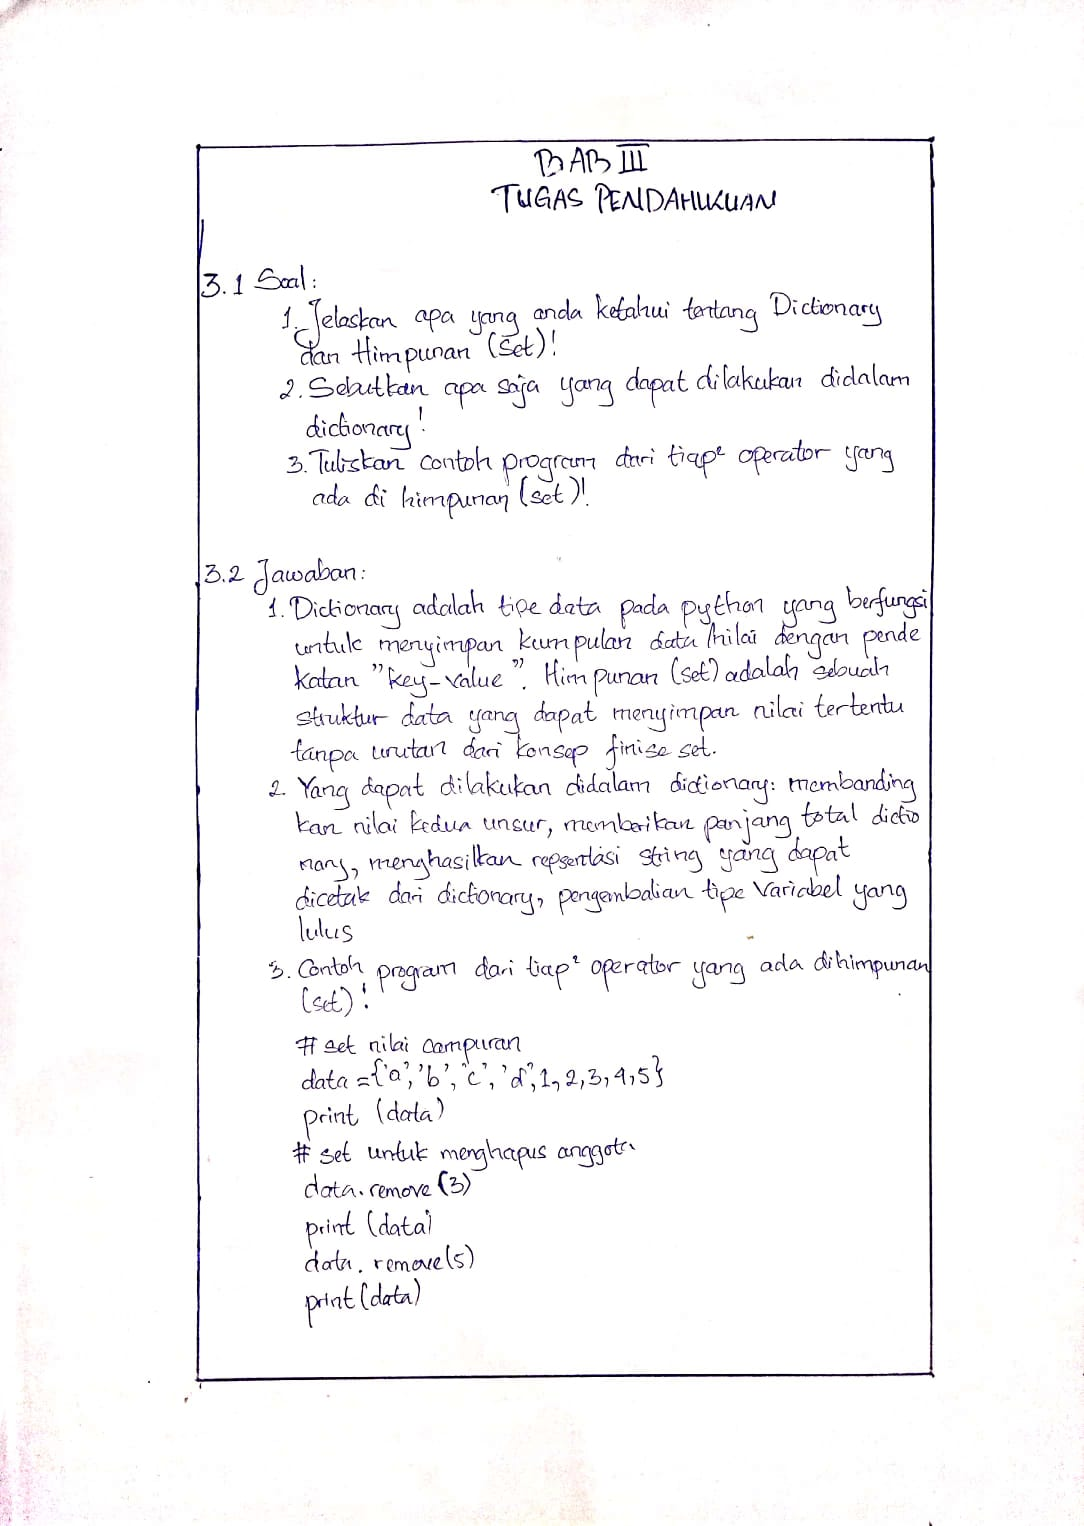 BAB III
TUGAS PENDAHUKUAN
3.1 Soal:
1. Jelaskan apa yang anda ketahui tentang Dictionary
dan Himpunan (Set)!
2. Sebutkan apa saja yang dapat dilakukan didalam
dictionary!
3. Tuliskan contoh program dari tiap² operator yang
ada di himpunan (set)!
3.2 Jawaban:
1. Dictionary adalah tipe data pada python yang berfungsi
untuk menyimpan kumpulan data/nilai dengan pende
katan "key-value". Himpunan (set) adalah sebuah
struktur data yang dapat menyimpan nilai tertentu
tanpa urutan dari konsep finise set.
2. Yang dapat dilakukan didalam dictionary: membanding
kan nilai kedua unsur, memberikan panjang total dictio
nary, menghasilkan repsentasi string yang dapat
dicetak dari dictionary, pengembalian tipe Variabel yang
lulus
3. Contoh program dari tiap² operator yang ada dihimpunan
(set)!
# set nilai campuran
data = {'a', 'b', 'c', 'd', 1, 2, 3, 4, 5}
print (data)
# set untuk menghapus anggota
data.remove (3)
print (data)
data.remove(5)
print (data)